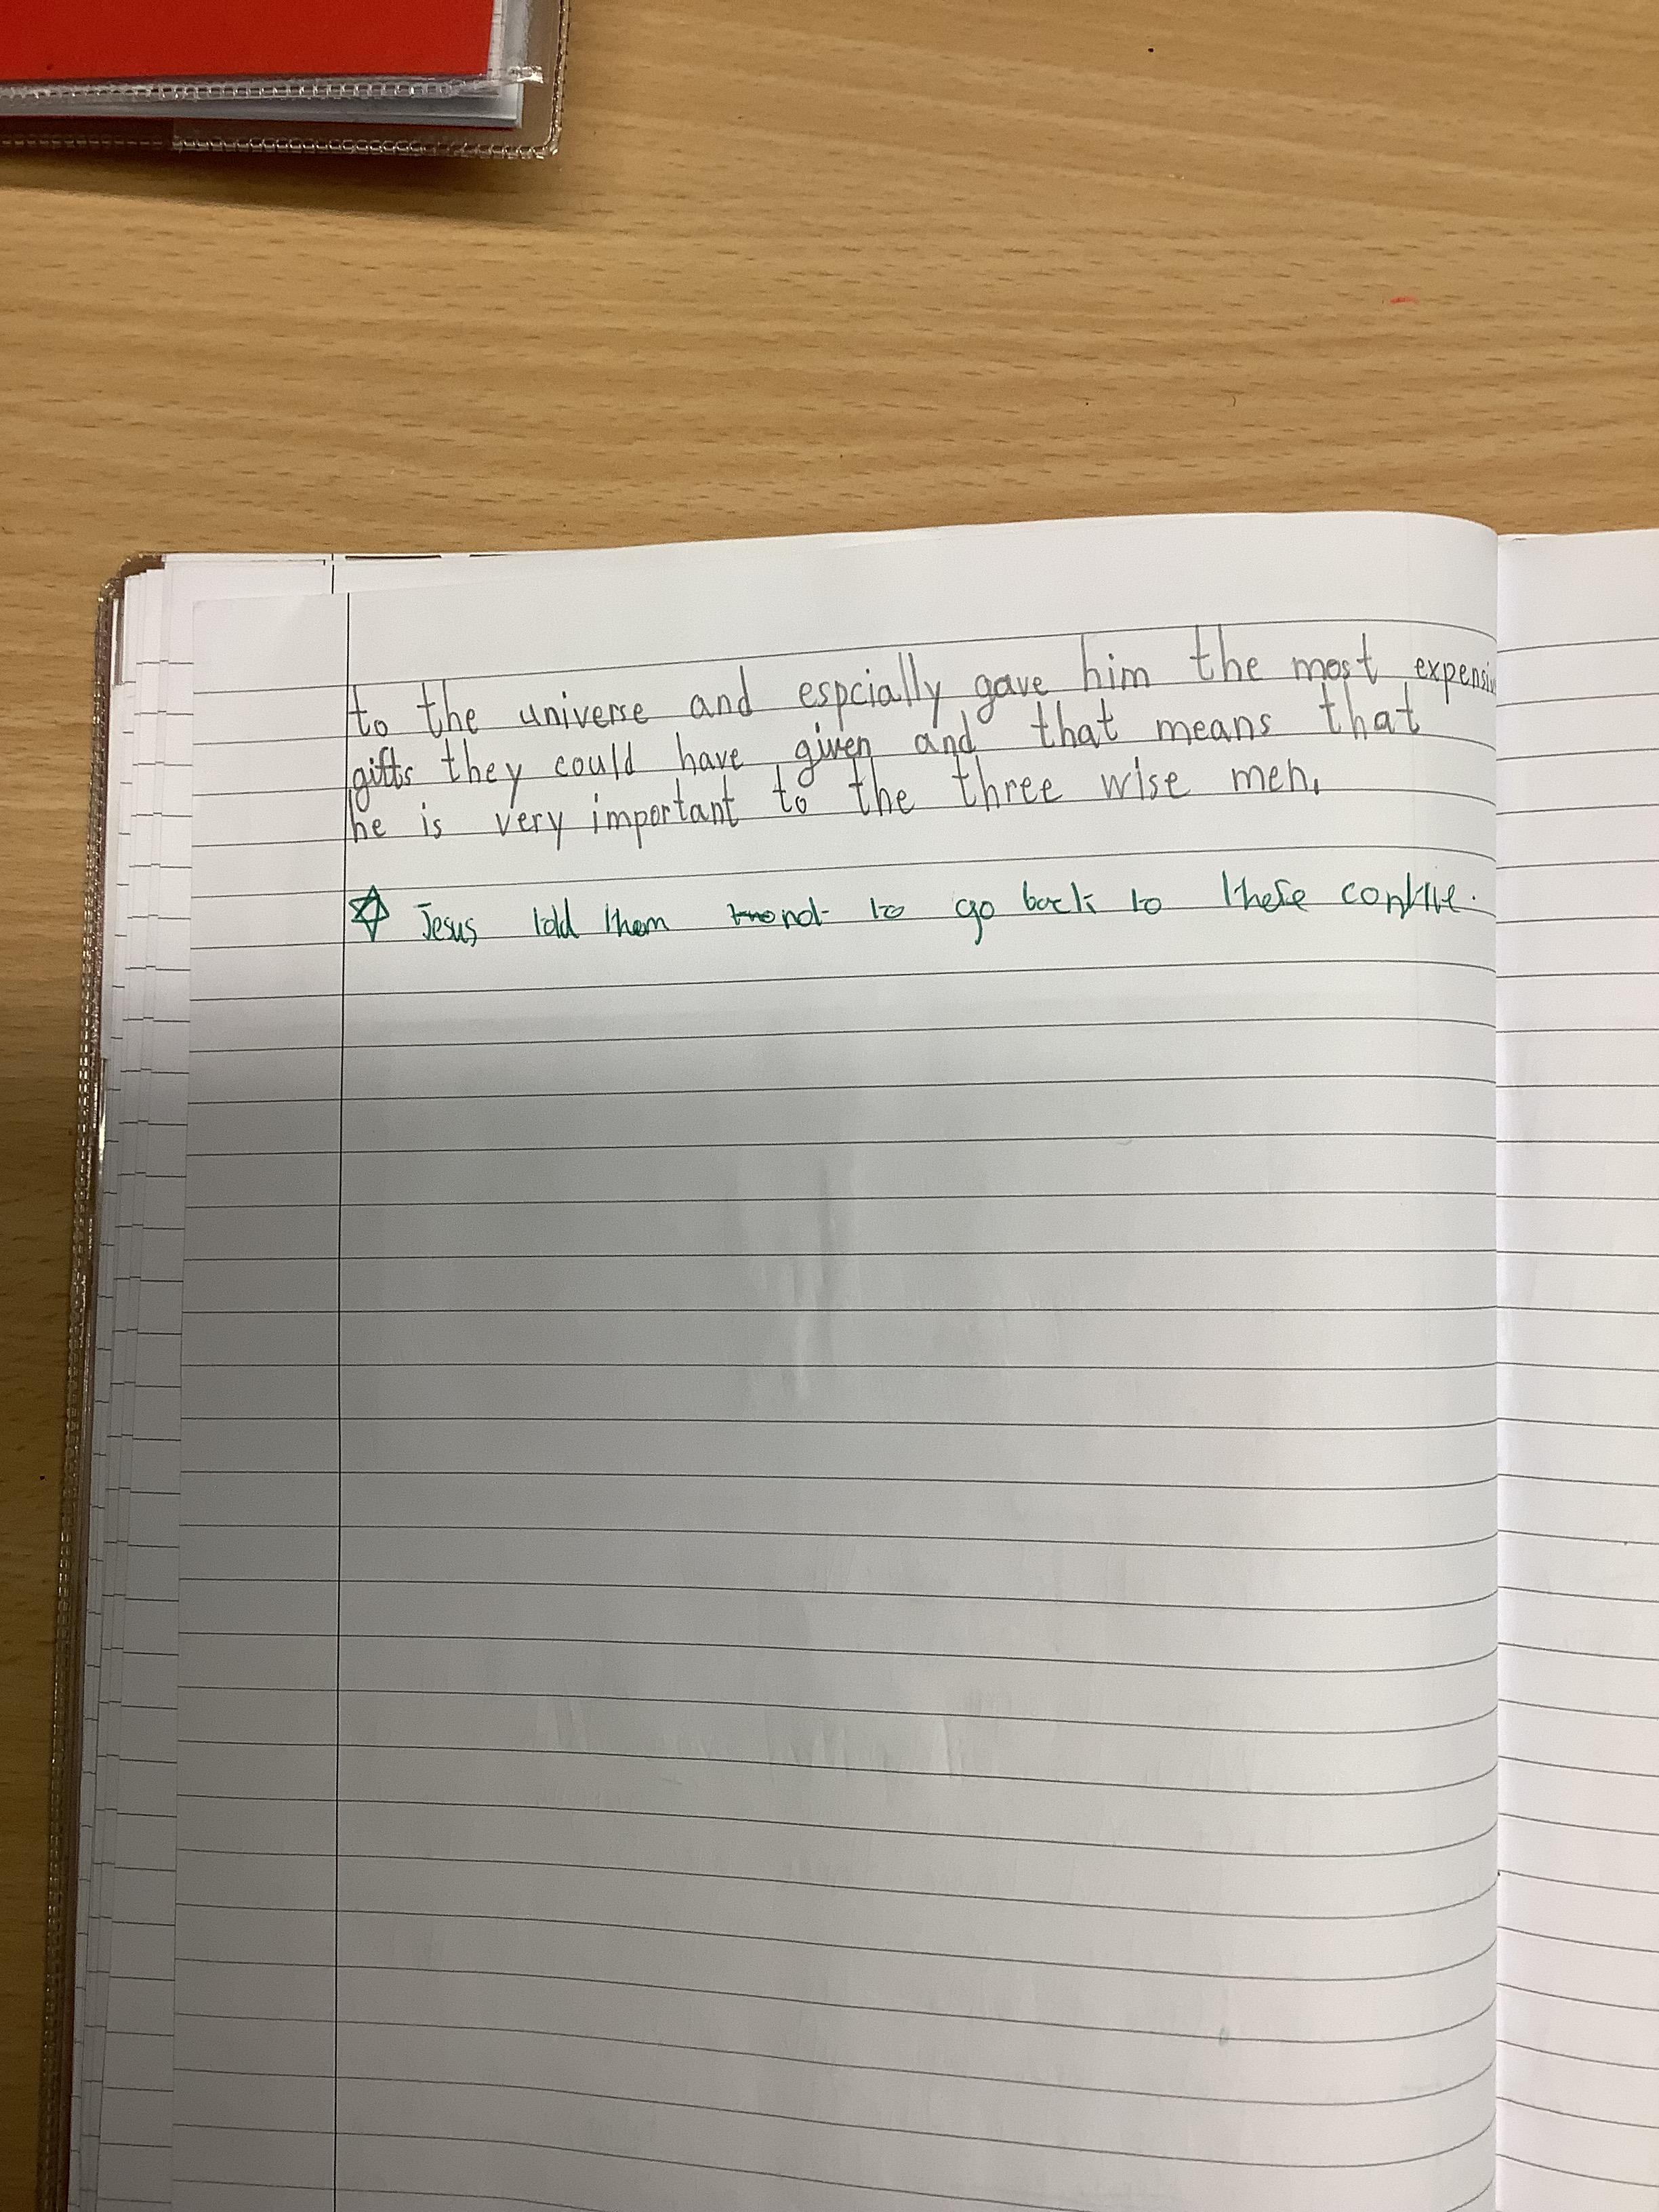 to the universe and espcially gave him the most expensiv
gifts they could have given and that means that
he is very important to the three wise men.
Jesus told them not to go back to there